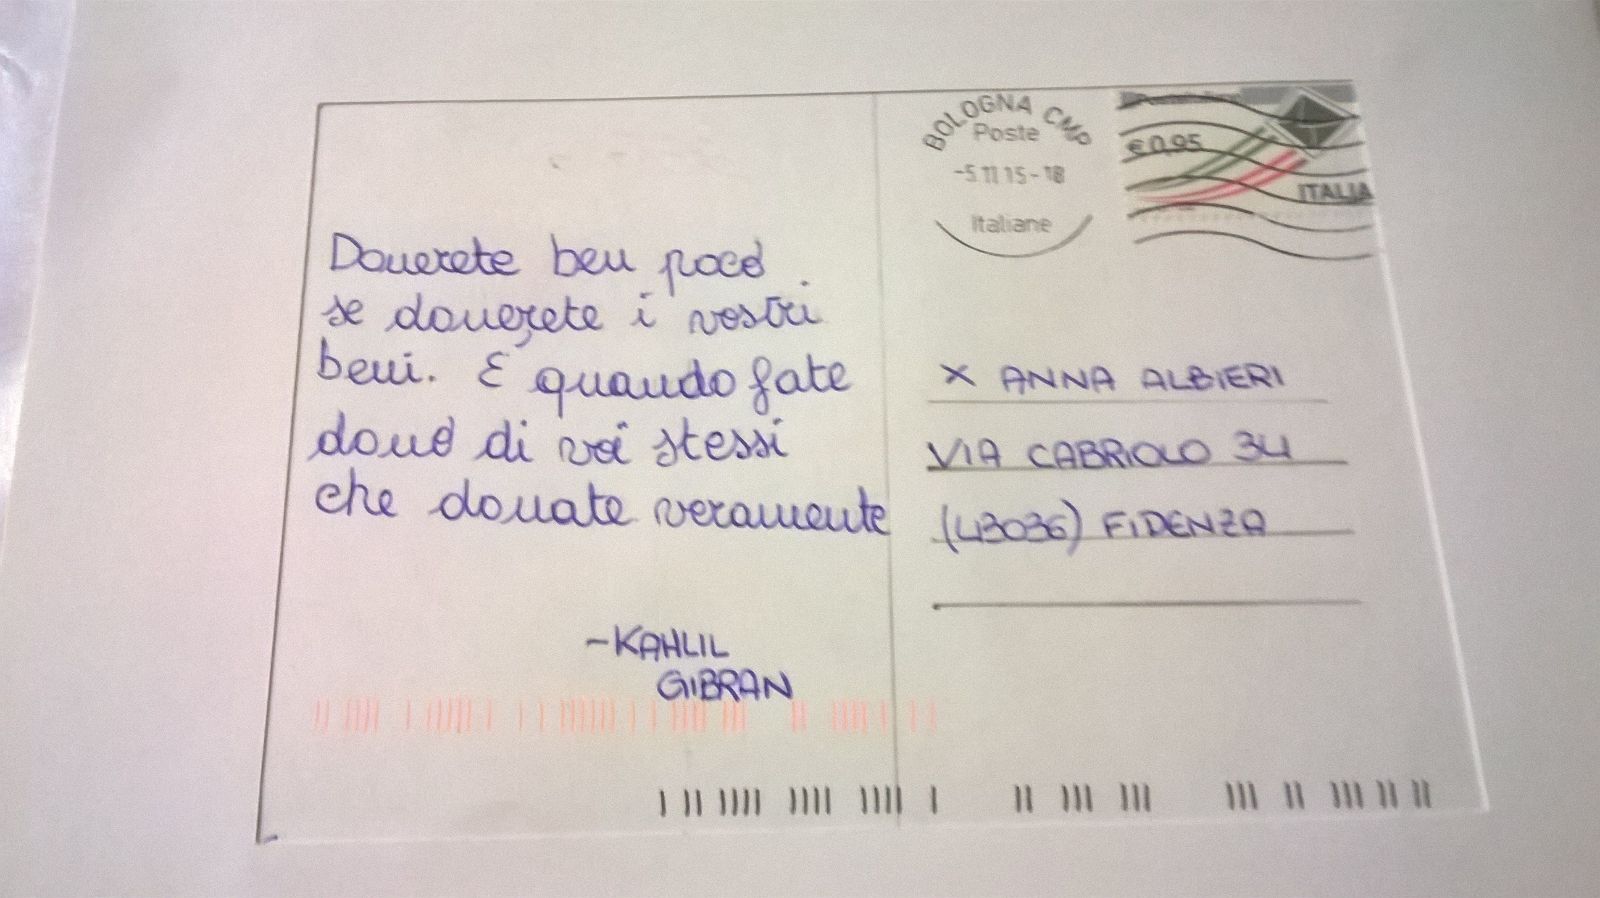 Donerete ben poco
se donerete i vostri
beni. E' quando fate
dono di voi stessi
che donate veramente
-KAHLIL
GIBRAN
BOLOGNA CMP
Poste
-5.11.15-18
Italiane
€0,95
ITALIA
X ANNA ALBIERI
VIA CABRIOLO 34
(43036) FIDENZA